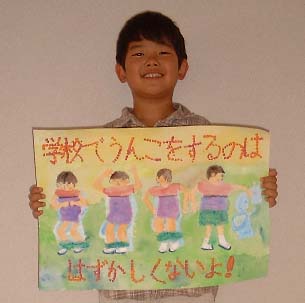 学校でうんこをするのは
はずかしくないよ!